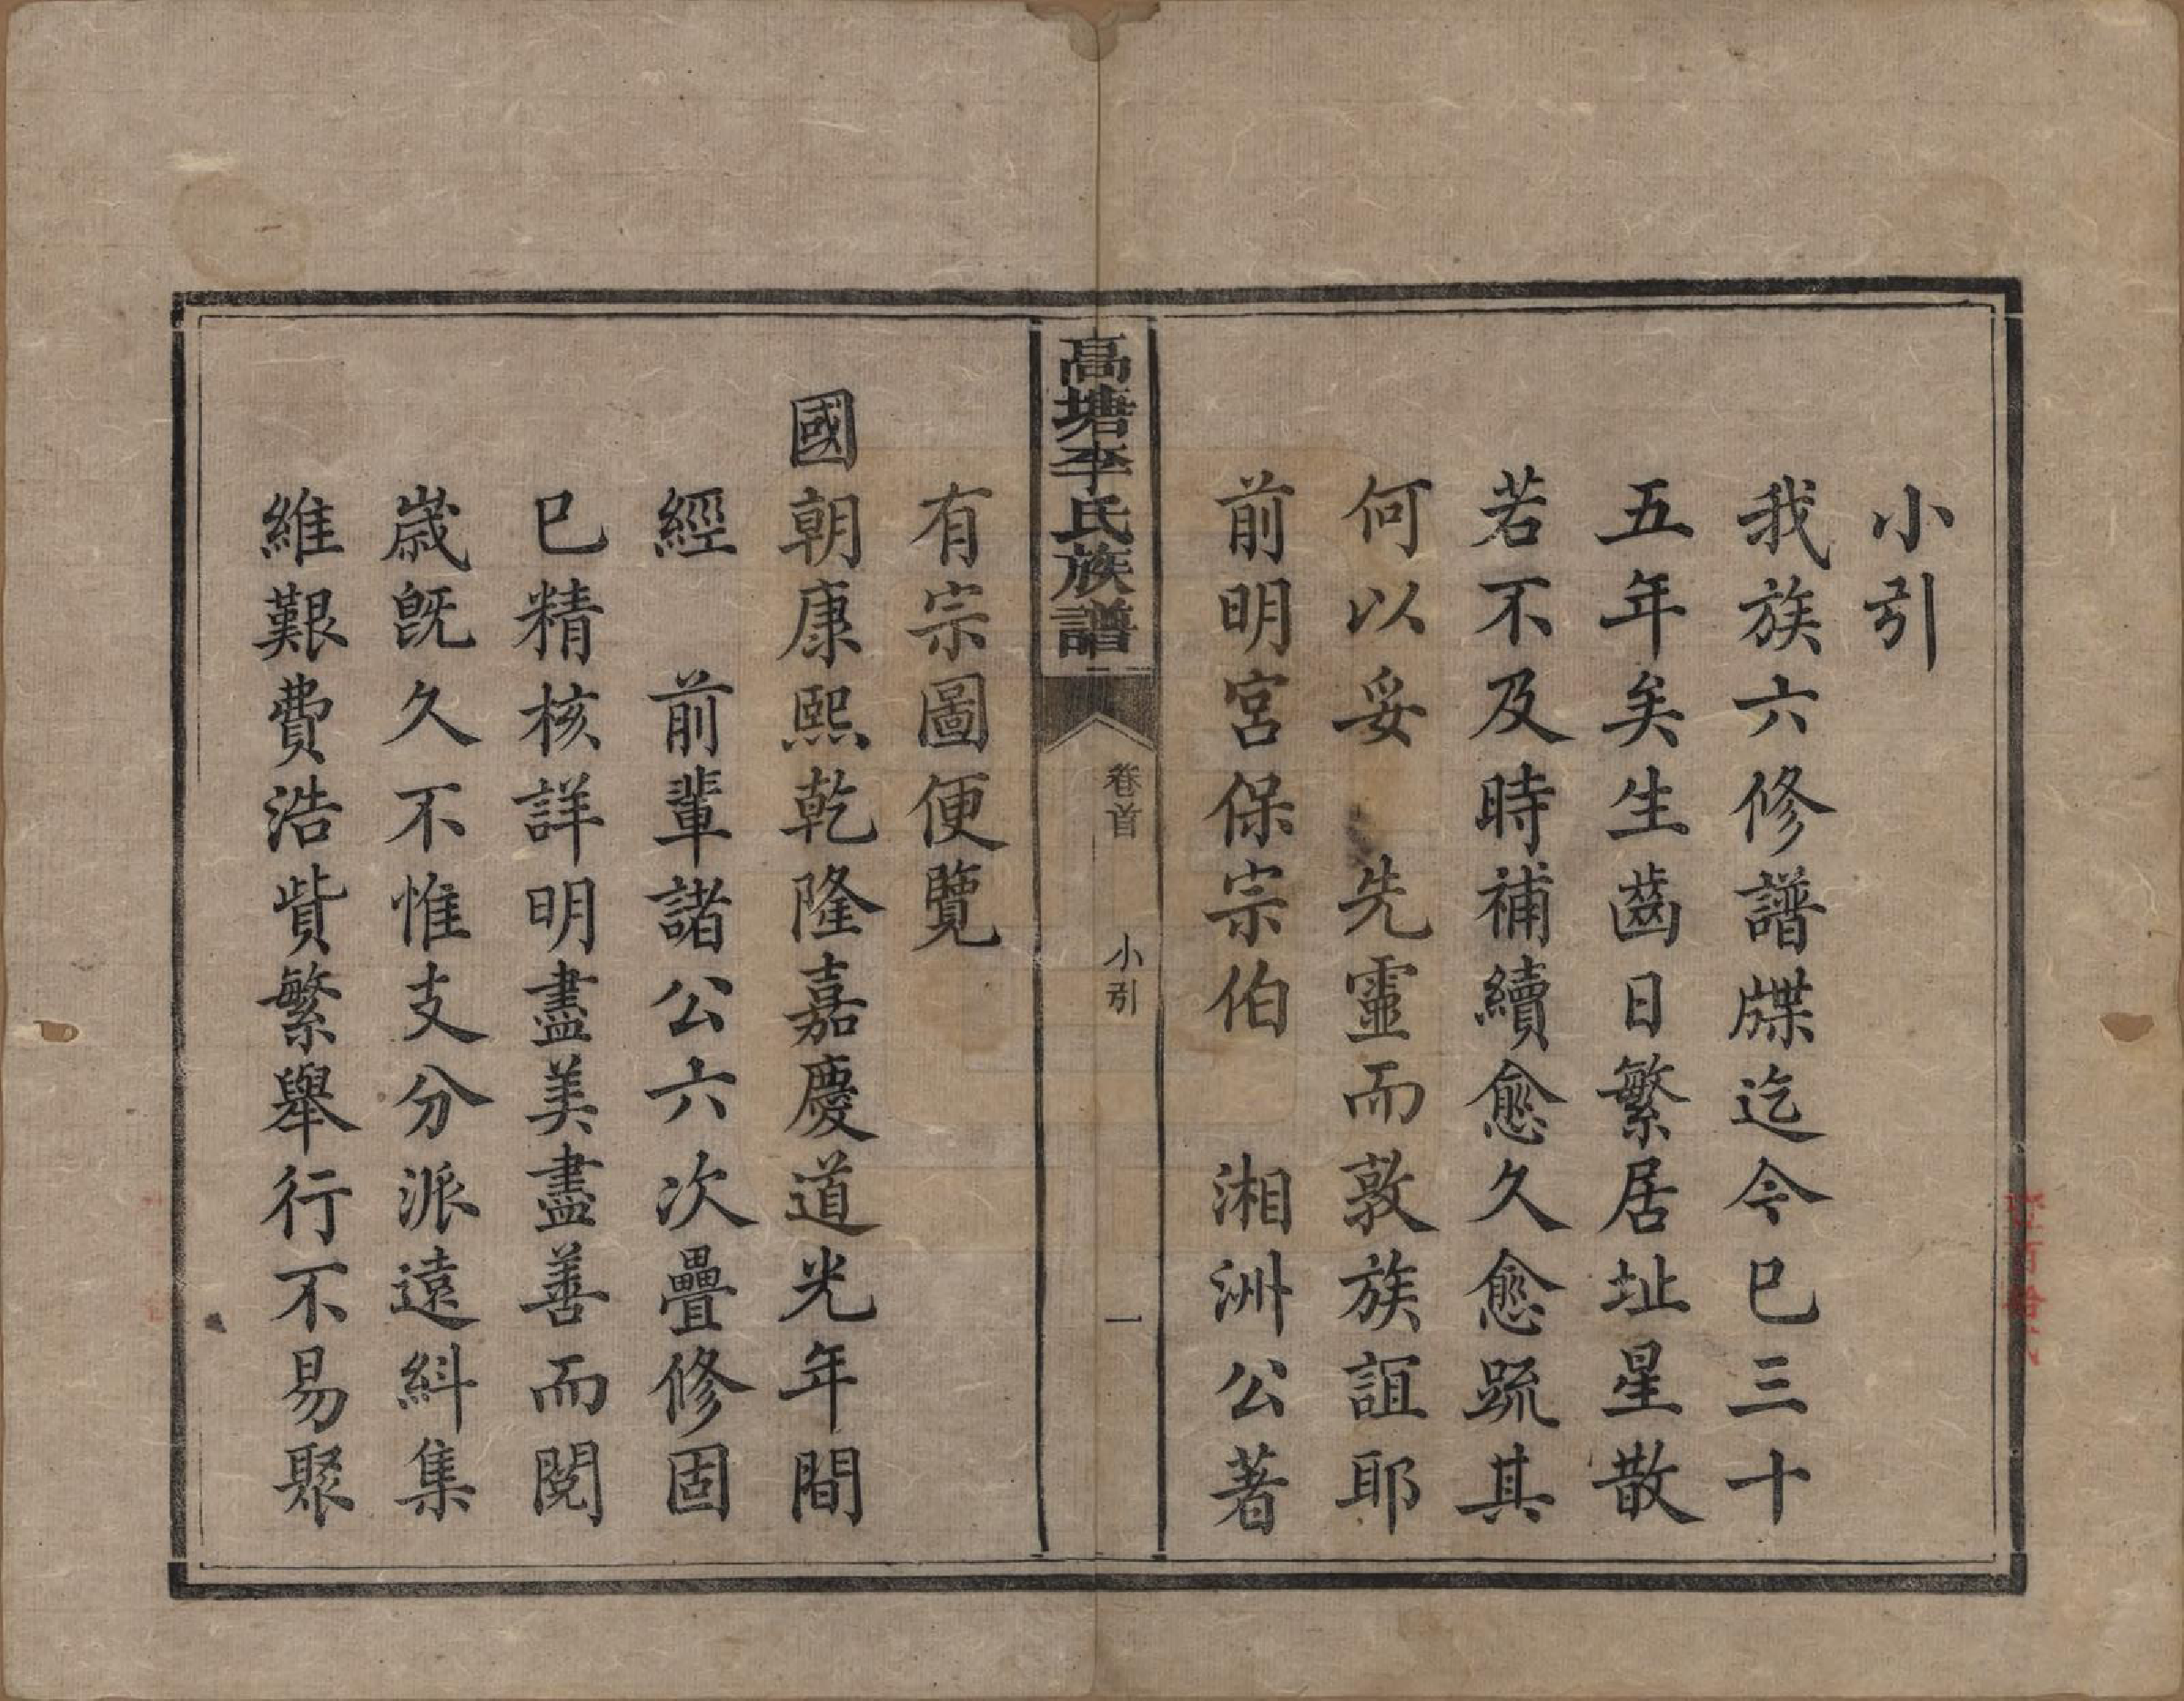 小引
我族六修譜牒迄今已三十
五年矣生齒日繁居址星散
若不及時補續愈久愈疏其
何以妥　先靈而敦族誼耶
前明宮保宗伯　湘洲公著
高塘李氏族譜
卷首　小引　一
有宗圖便覽
國朝康熙乾隆嘉慶道光年間
經　前輩諸公六次疊修固
已精核詳明盡美盡善而閱
歲旣久不惟支分派遠糾集
維艱費浩貲繁舉行不易聚